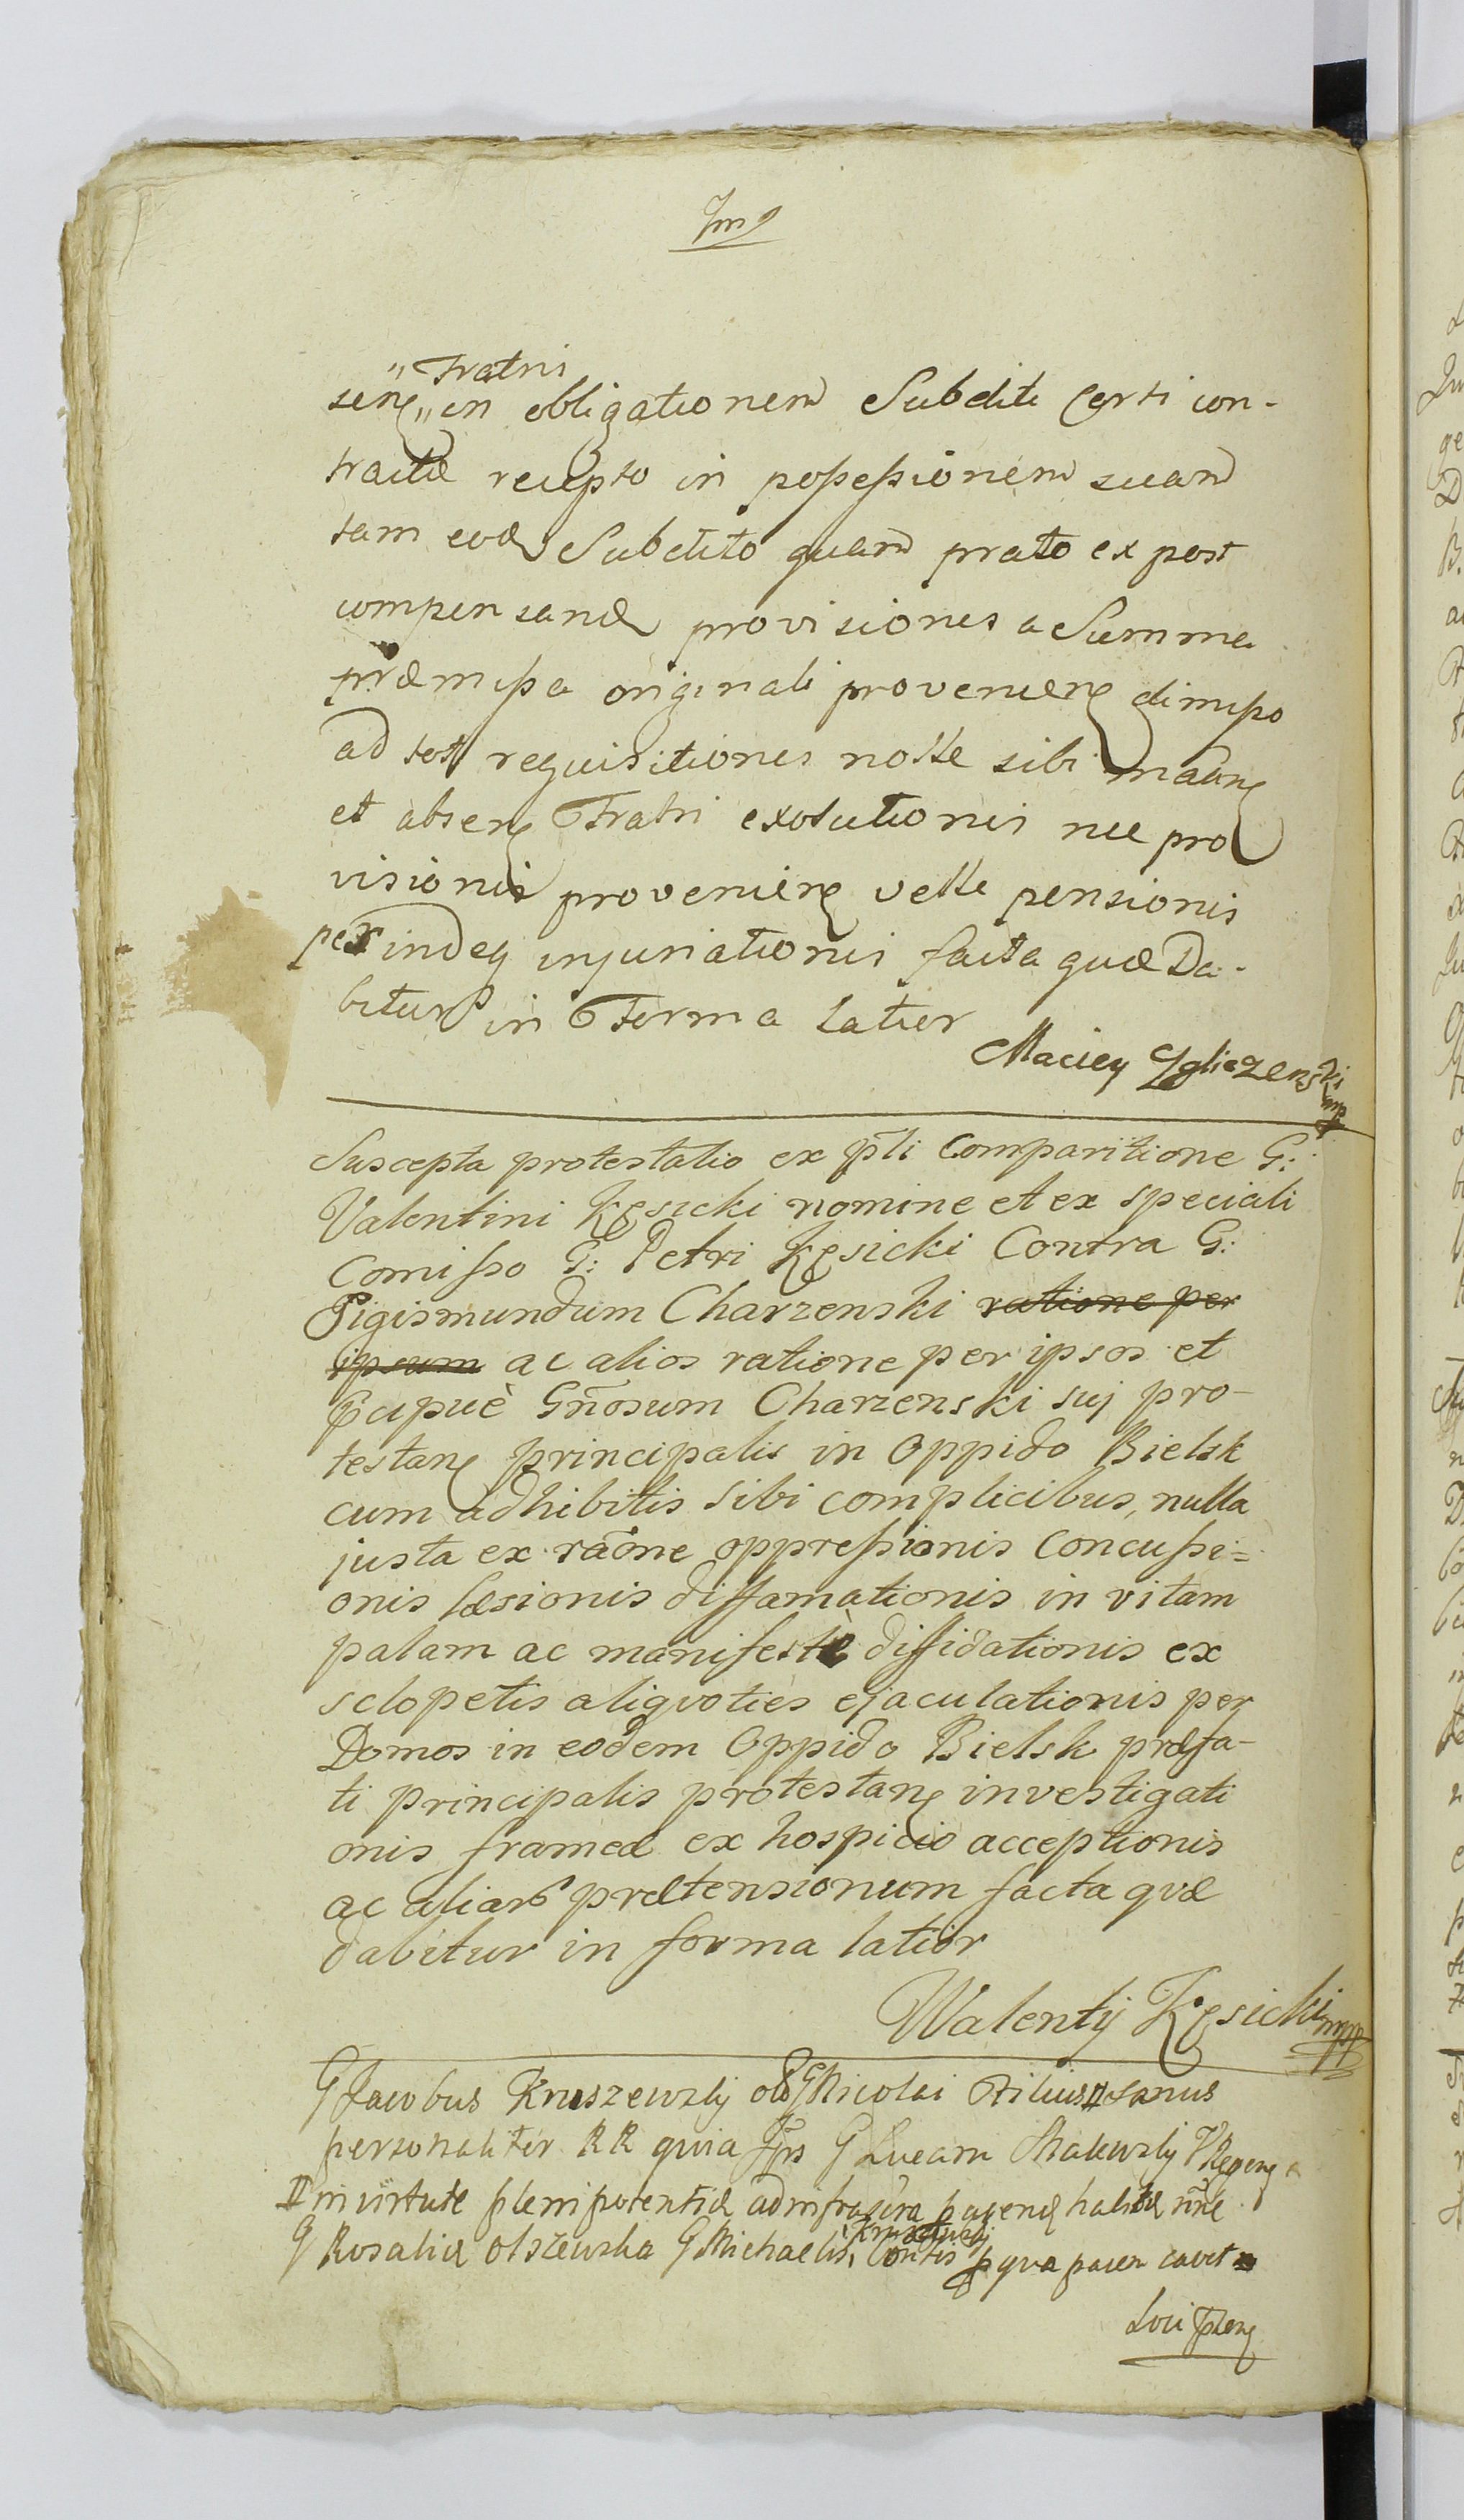 " Fratri
seng " in obligationem Subditi Certi con-
tractu recepto in possessionem suam
tam eod Subdito quam prato ex post
compensand provisiones a Summa
præmissa originali proveniens dimisso
ad tot requisitiones nolle sibi
et absen Fratri exolutionis nec pro
visionis proveniens velle pensionis
perindeq injuriationis facta quæ Da-
bitur in Forma Latior
Maciey Zglieczenski mp
Suscepta protestatio ex pti Comparitione G:
Valentini Kęsicki nomine et ex speciali
Comisso G: Petri Kęsicki Contra G:
Sigismundum Charzenski ratione per
ipsum ac alios ratione per ipsos et
pcipuè Gnosum Charzenski suj pro-
testan principalis in Oppido Bielsk
cum adhibitis sibi complicibus, nulla
justa ex raone oppressionis Concussi=
onis læsionis diffamationis in vitam
palam ac manifestè diffidationis ex
sclopetis aliqvoties ejaculationis per
Domos in eodem Oppido Bielsk præfa-
ti principalis protestan investigati
onis frameæ ex hospicio acceptionis
ac aliar prætensionum facta qvæ
dabitur in forma latior
Walentÿ Kęsicki mpp
G Jacobus Kruszewskij olő G Nicolai Filius # sanus
personaliter RR quia G Lucam
# in virtute plenipotentiæ ad infra
G Rosalia Olszewska G Michaelis Kruszewskij Contis p qva cavet
Loci